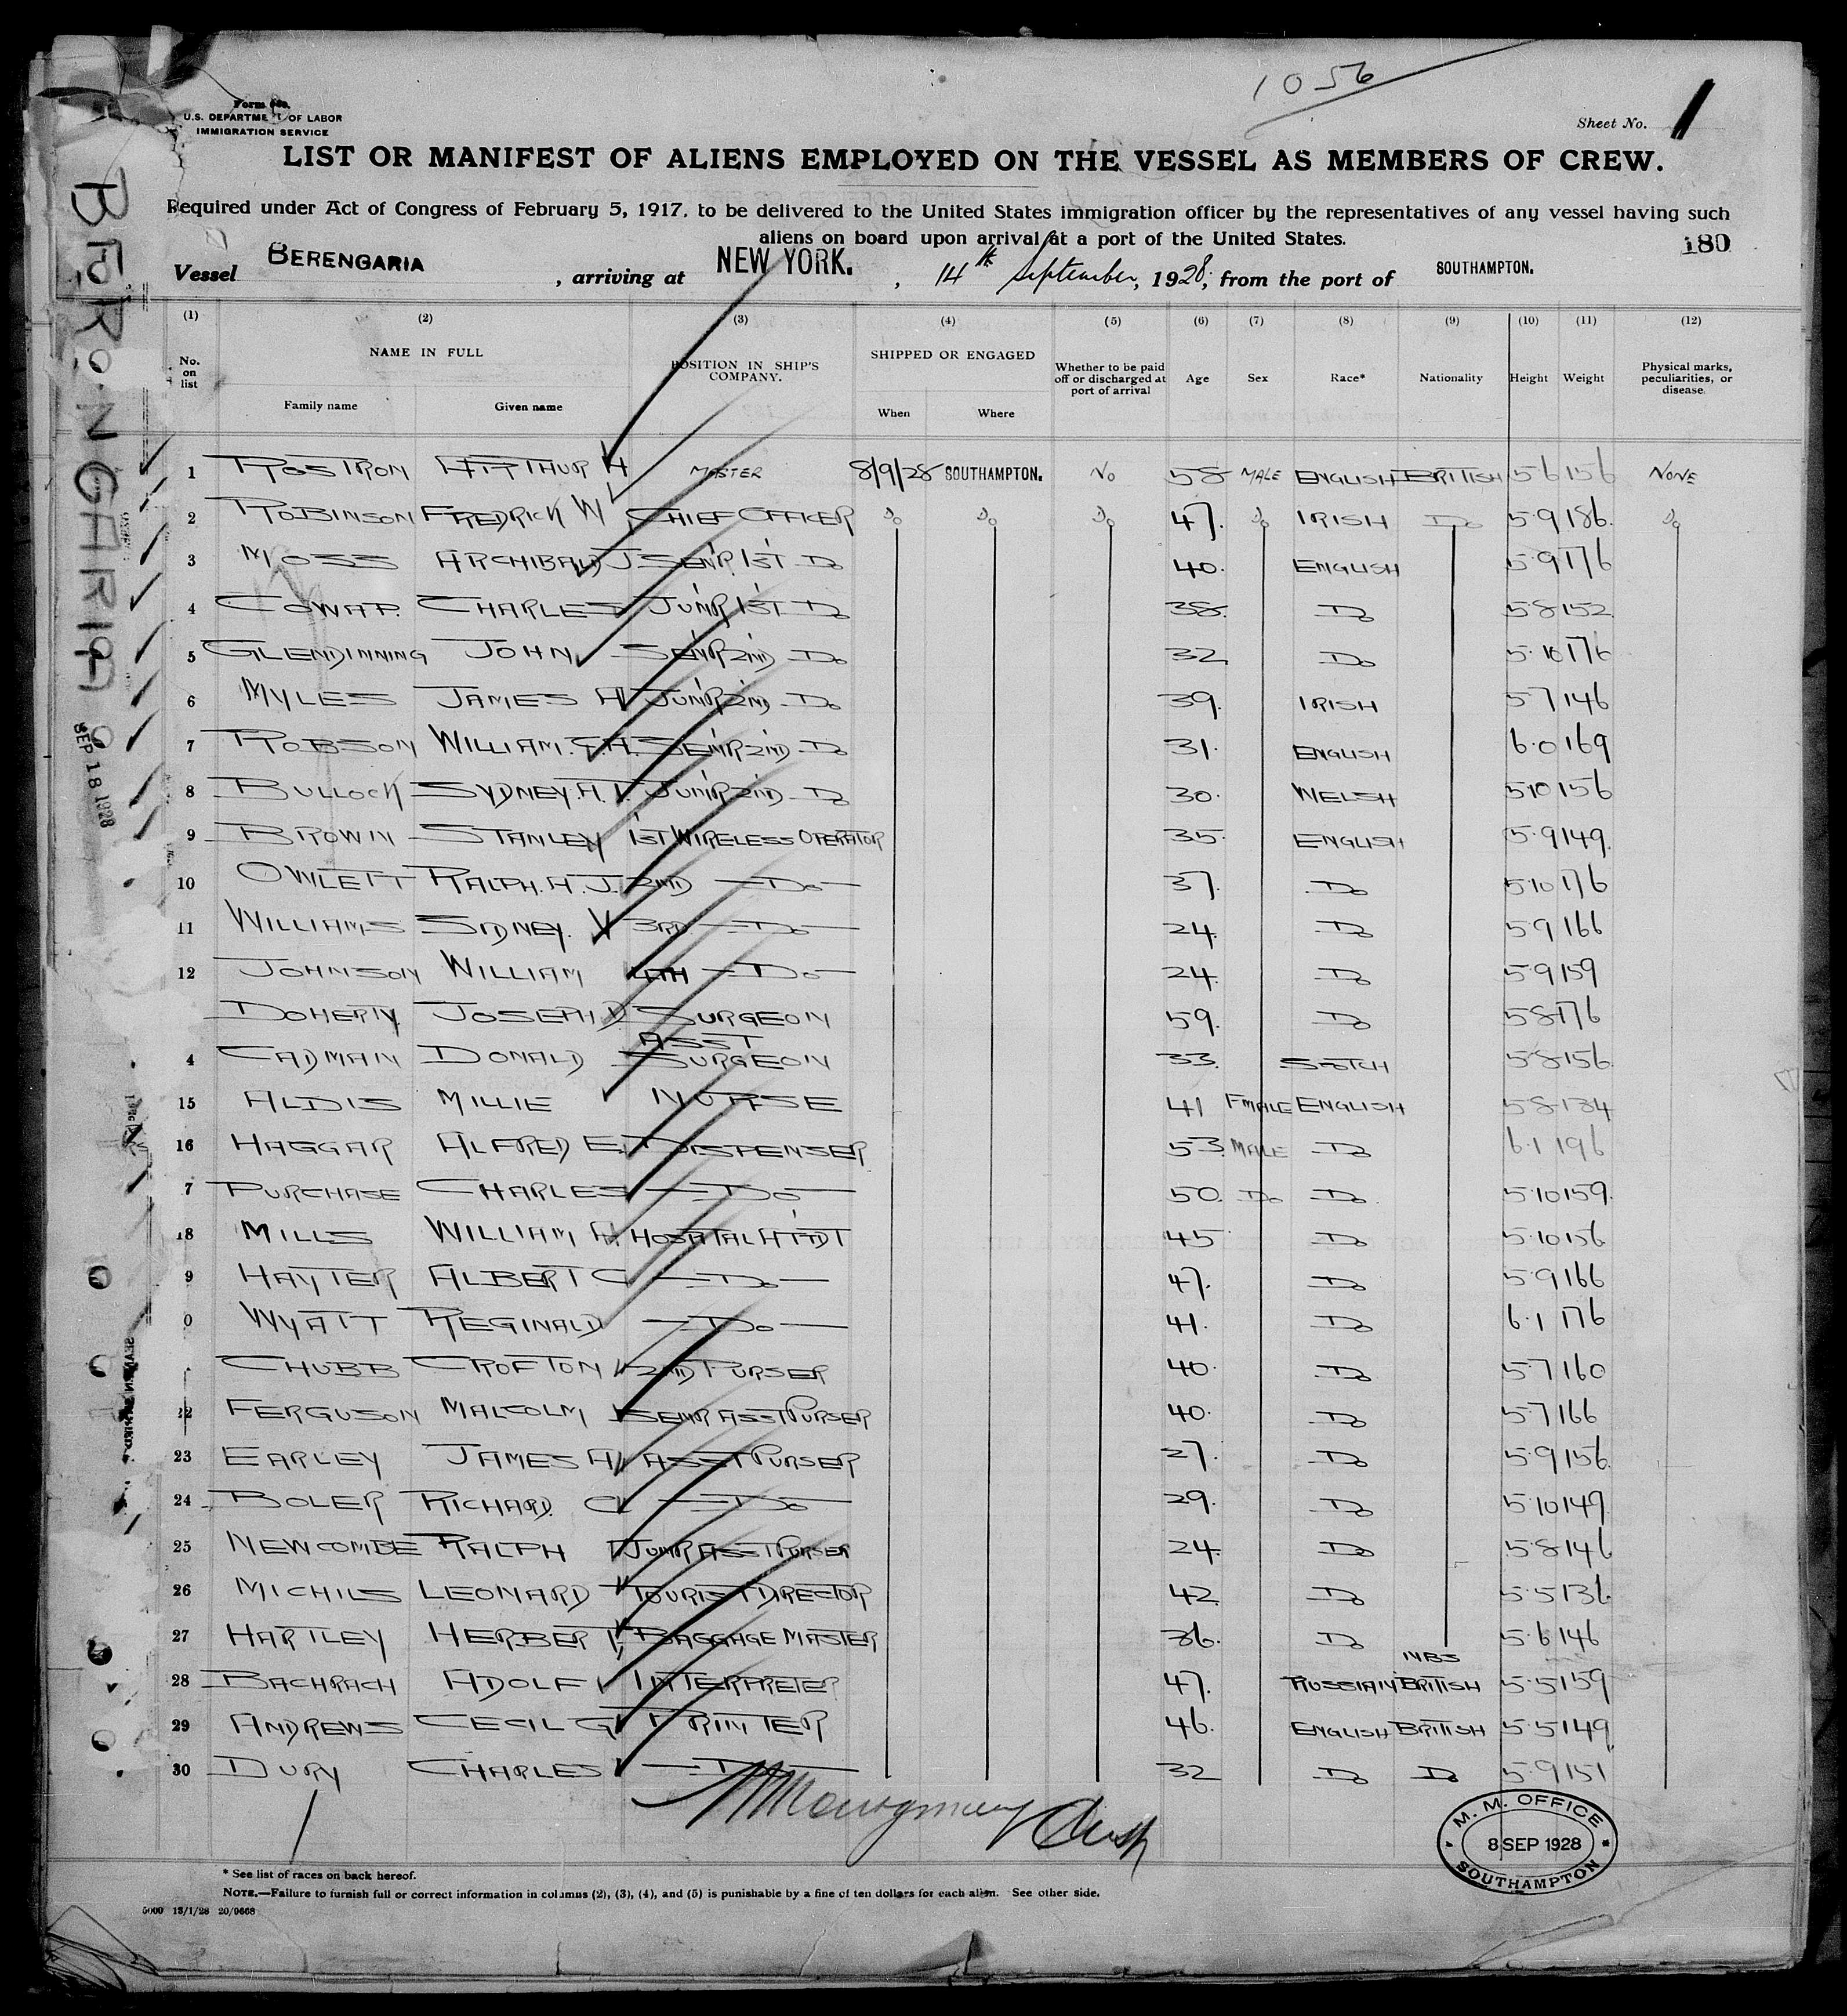 1056
Form 689.
U.S. DEPARTMENT OF LABOR
IMMIGRATION SERVICE
Sheet No. 1
LIST OR MANIFEST OF ALIENS EMPLOYED ON THE VESSEL AS MEMBERS OF CREW.
Required under Act of Congress of February 5, 1917, to be delivered to the United States immigration officer by the representatives of any vessel having such
aliens on board upon arrival at a port of the United States.
180
Vessel BERENGARIA, arriving at NEW YORK., 14th September, 1928, from the port of SOUTHAMPTON.
BERENGARIA
SEP 18 1928
(1) (2) (3) (4) (5) (6) (7) (8) (9) (10) (11) (12)
No. on list NAME IN FULL Family name Given name POSITION IN SHIP'S COMPANY. SHIPPED OR ENGAGED When Where Whether to be paid off or discharged at port of arrival Age Sex Race* Nationality Height Weight Physical marks, peculiarities, or disease
1 ROSTRON ARTHUR H MASTER 8/9/28 SOUTHAMPTON. No 58 MALE ENGLISH BRITISH 5 6 156 NONE
2 ROBINSON FREDRICK W CHIEF OFFICER Do Do Do 47. Do IRISH Do 5 9 186. Do
3 MOSS ARCHIBALD J SEN'R 1ST Do 40. ENGLISH 5 9 176
4 COWAP. CHARLES JUN'R 1ST Do 38. Do 5 8 152
5 GLENDINNING JOHN SEN'R 2ND Do 32 Do 5.10 176
6 MYLES JAMES A JUN'R 2ND Do 39. IRISH 5 7 146
7 ROBSON WILLIAM.G.H. SEN'R 2ND Do 31. ENGLISH 6.0 169
8 BULLOCK SYDNEY.A.V. JUN'R 2ND Do 30. WELSH 5 10 156
9 BROWN STANLEY 1ST WIRELESS OPERATOR 35. ENGLISH 5.9 149.
10 OWLETT RALPH.H.J. 2ND Do 37. Do 5.10 176
11 WILLIAMS SIDNEY. V 3RD Do 24. Do 5 9 166
12 JOHNSON WILLIAM 4TH Do 24. Do 5 9 159
DOHERTY JOSEPH D SURGEON 59. Do 5 8 176
4 CADMAN DONALD ASST SURGEON 33. SCOTCH 5 8 156
15 ALDIS MILLIE NURSE 41 FMALE ENGLISH 5 8 134
16 HAGGAR ALFRED E. DISPENSER 53. MALE Do 6.1 196
7 PURCHASE CHARLES Do 50. Do Do 5.10 159.
18 MILLS WILLIAM A. HOSPITAL ATTDT 45 Do 5.10 156
9 HAYTER ALBERT C Do 47. Do 5 9 166
0 WYATT REGINALD Do 41. Do 6.1 176
CHUBB CROFTON 2ND PURSER 40. Do 5.7 160
22 FERGUSON MALCOLM SENR ASST PURSER 40. Do 5.7 166
23 EARLEY JAMES A ASST PURSER 27. Do 5 9 156.
24 BOLER RICHARD. C Do 29. Do 5.10 149
25 NEWCOMBE RALPH JUNR ASST PURSER 24. Do 5 8 146
26 MICHILS LEONARD TOURIST DIRECTOR 42 Do 5.5 136
27 HARTLEY HERBERT BAGGAGE MASTER 36. Do 5.6 146
28 BACHRACH ADOLF INTERPRETER 47. RUSSIAN NBS BRITISH 5.5 159
29 ANDREWS CECIL G PRINTER 46. ENGLISH BRITISH 5 5 149
30 DURY CHARLES Do 32 Do Do 5.9 151
M. M. OFFICE
8 SEP 1928
SOUTHAMPTON
* See list of races on back hereof.
NOTE.—Failure to furnish full or correct information in columns (2), (3), (4), and (5) is punishable by a fine of ten dollars for each alien. See other side.
5000 13/1/28 20/9668